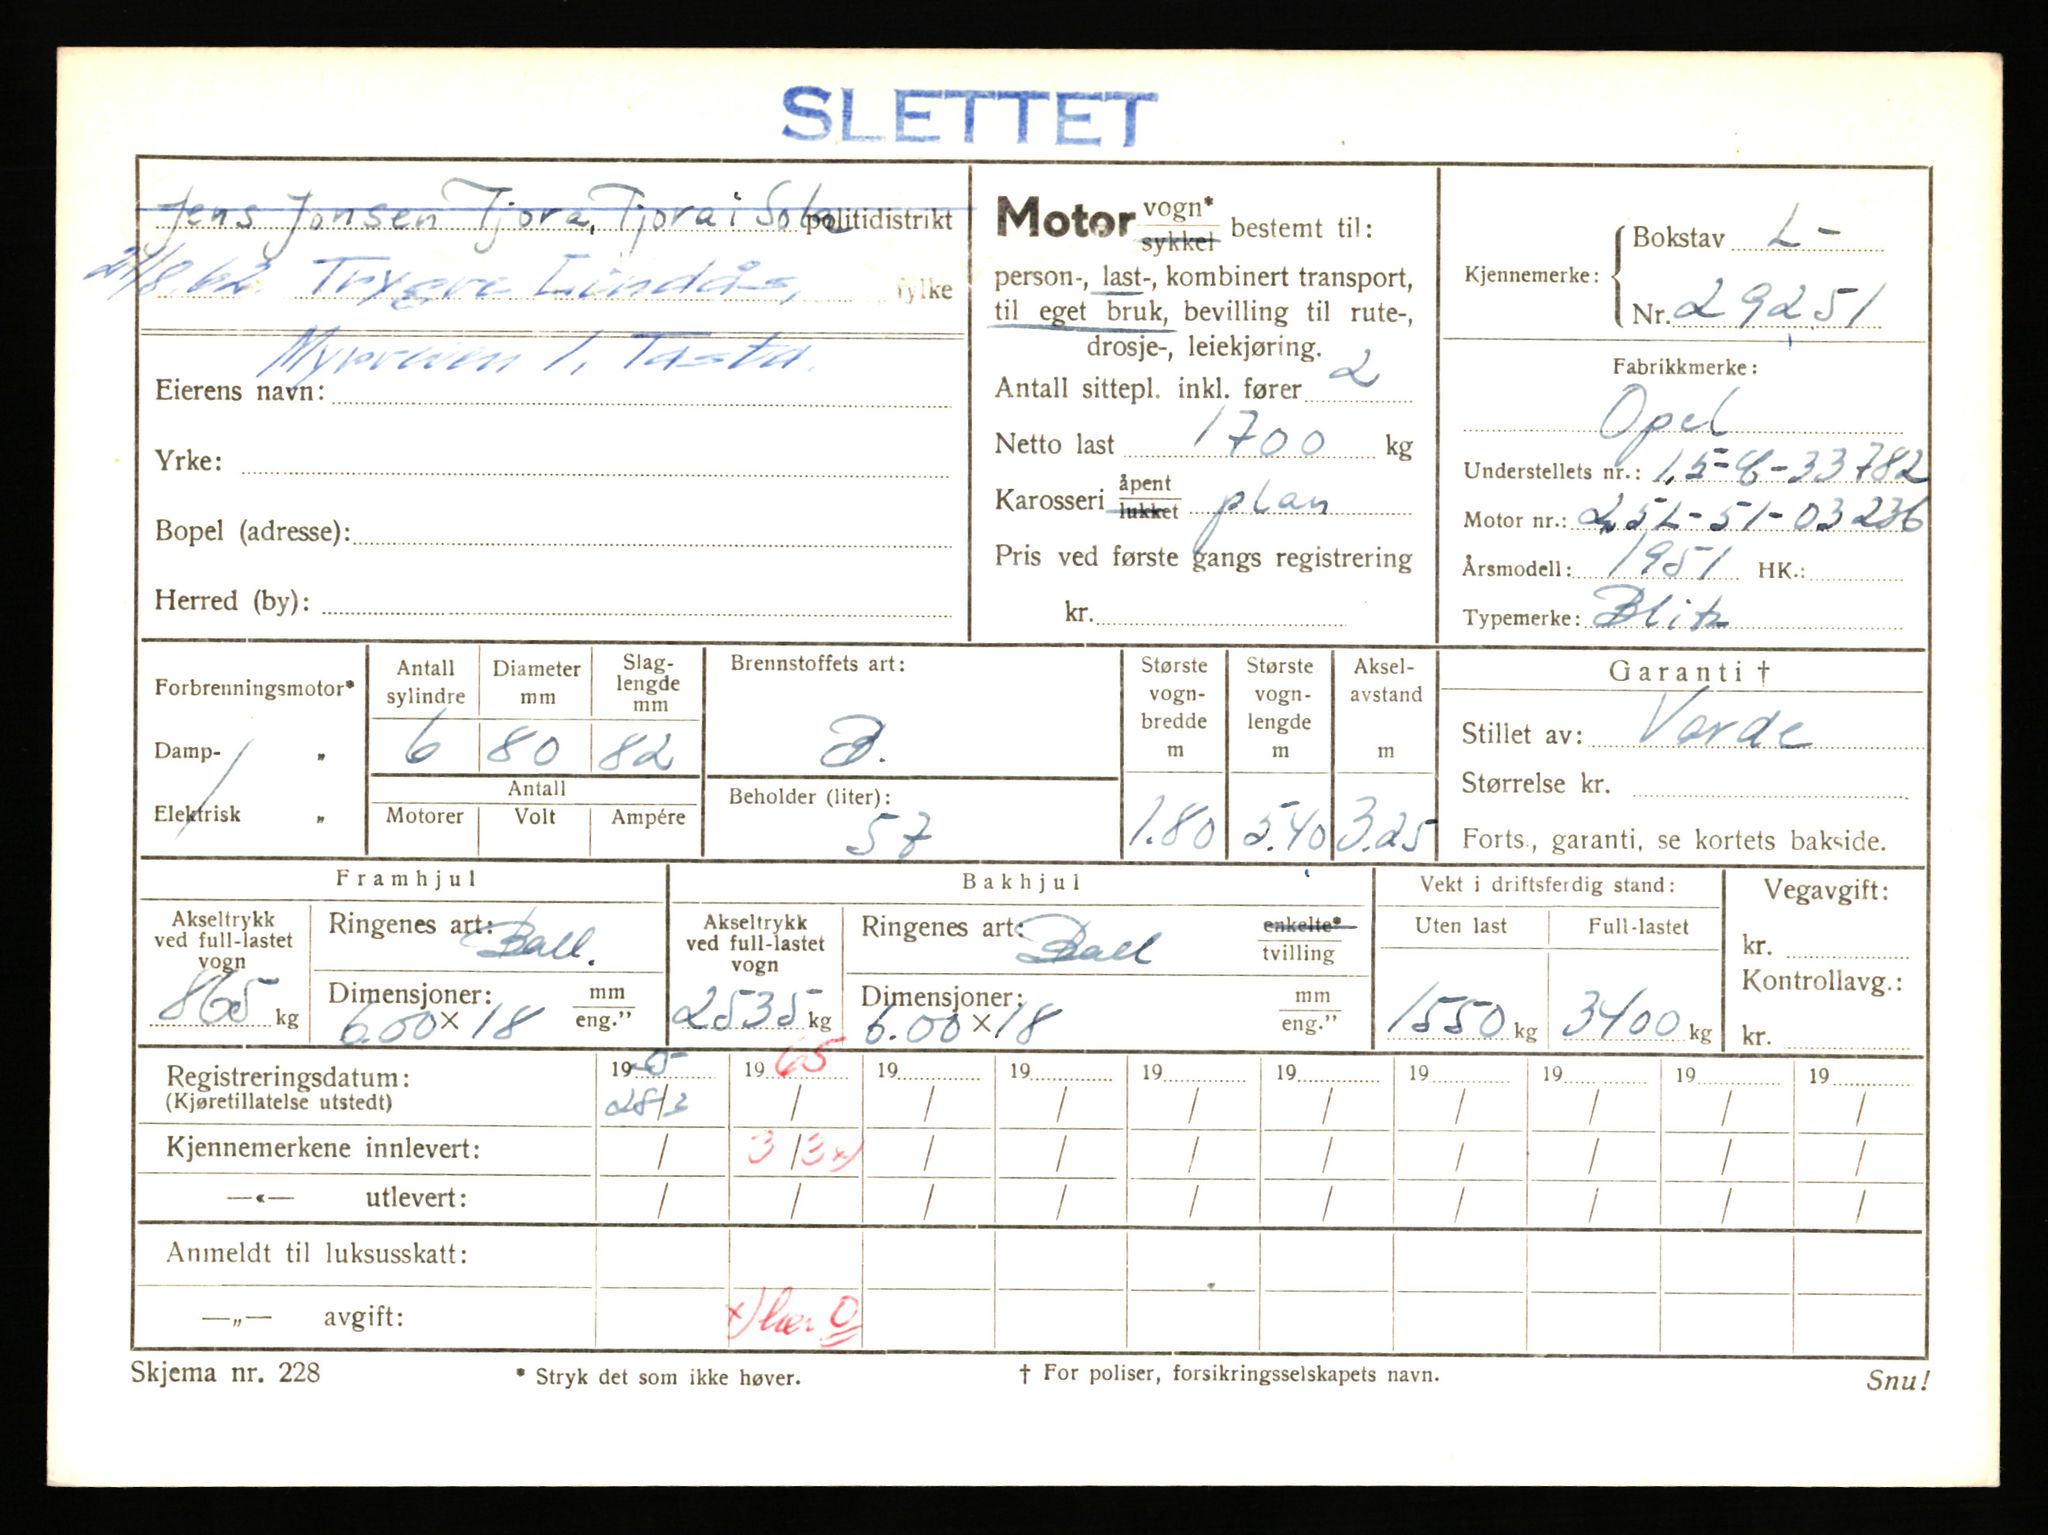 SLETTET
Jens Jonsen Tjora, Tjora i Sola politidistrikt
21/8.62. Trygve Lindås, fylke
1, Tasta.
Eierens navn:
Yrke:
Bopel (adresse):
Herred (by):
Motor vogn* / sykkel bestemt til:
person-, last-, kombinert transport,
til eget bruk, bevilling til rute-,
drosje-, leiekjøring.
Antall sittepl. inkl. fører 2
Netto last 1700 kg
Karosseri åpent / lukket plan
Pris ved første gangs registrering
kr.
Kjennemerke: Bokstav L-
Nr. 29251
Fabrikkmerke:
Opel
Understellets nr.: 1,5-8-33782
Motor nr.: 2,5L-51-03236
Årsmodell: 1951 HK.:
Typemerke: Blitz
Forbrenningsmotor*
Damp- „
Elektrisk „
Antall sylindre 6
Diameter mm 80
Slaglengde mm 82
Antall
Motorer Volt Ampére
Brennstoffets art:
B.
Beholder (liter):
57
Største vognbredde m 1.80
Største vognlengde m 5.40
Akselavstand m 3.25
Garanti †
Stillet av: Varde
Størrelse kr.
Forts., garanti, se kortets bakside.
Framhjul
Akseltrykk ved full-lastet vogn 865 kg
Ringenes art: Ball.
Dimensjoner: mm / eng."
6.00 x 18
Bakhjul
Akseltrykk ved full-lastet vogn 2535 kg
Ringenes art: Ball enkelte* / tvilling
Dimensjoner: mm / eng."
6.00 x 18
Vekt i driftsferdig stand:
Uten last 1550 kg
Full-lastet 3400 kg
Vegavgift:
kr.
Kontrollavg.:
kr.
Registreringsdatum: 19 19 65 19 19 19 19 19 19 19 19
(Kjøretillatelse utstedt) 28/3 / / / / / / / / /
Kjennemerkene innlevert: / 3/3 x) / / / / / / / /
—«— utlevert: / / / / / / / / / /
Anmeldt til luksusskatt:
—„— avgift: x) her 0
Skjema nr. 228
* Stryk det som ikke høver.
† For poliser, forsikringsselskapets navn.
Snu!